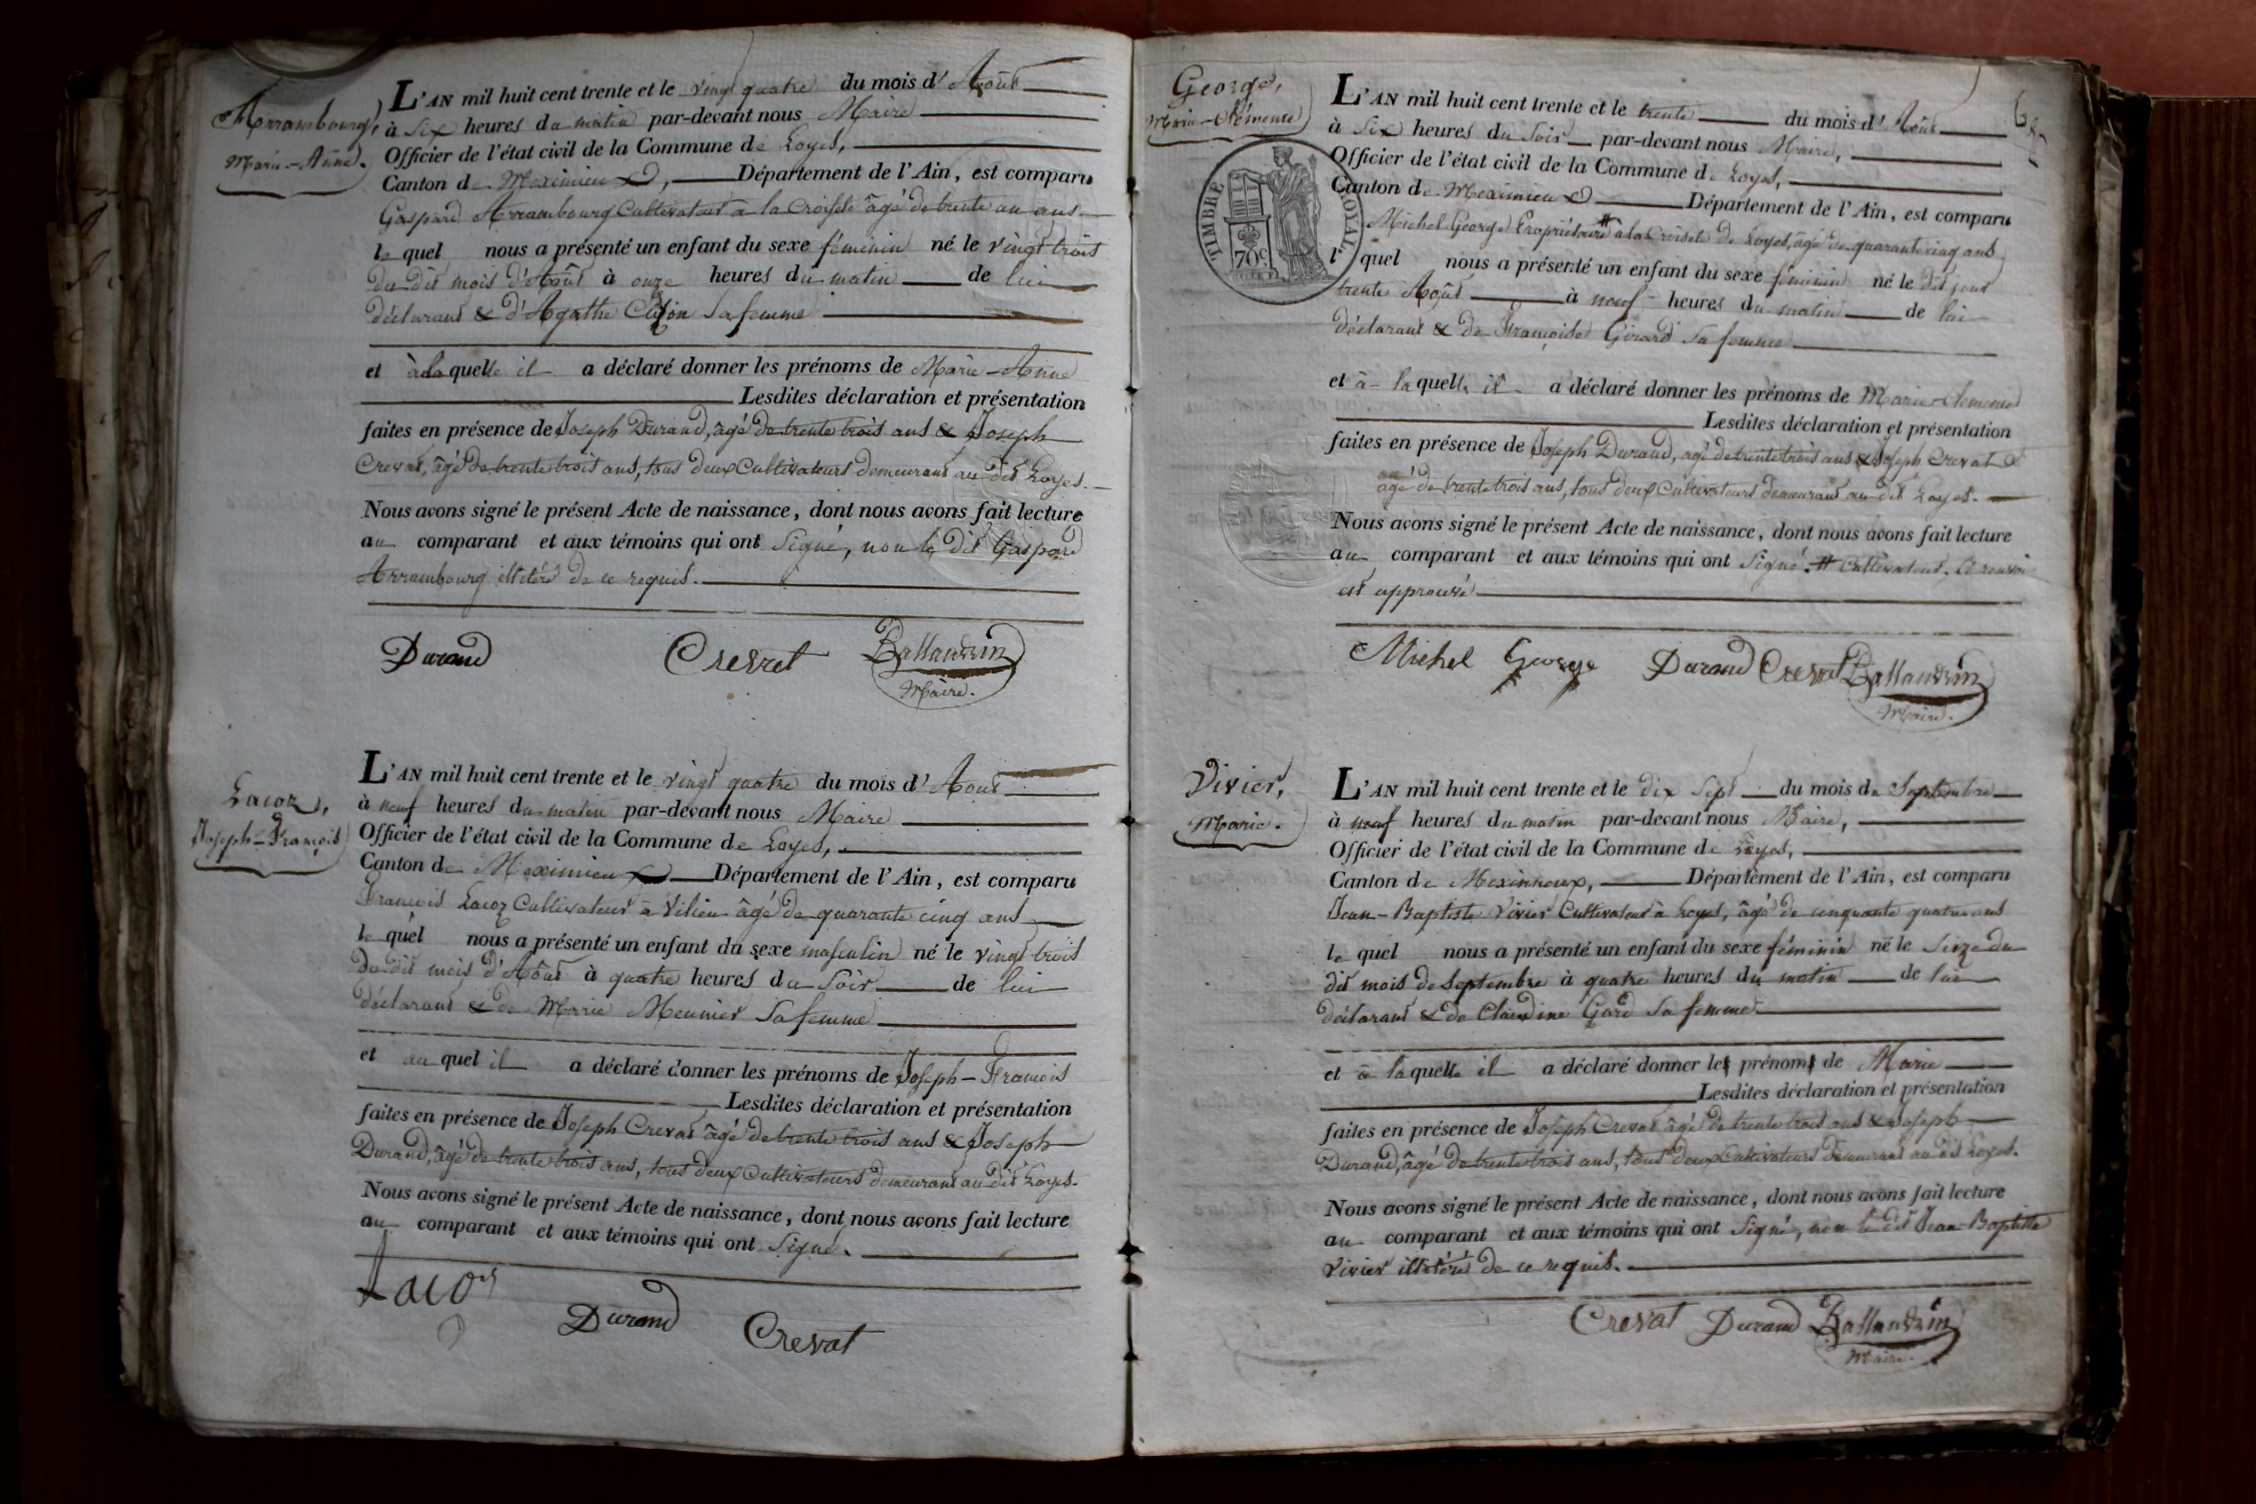 Arrambourg,
Marie-Anne.
L'AN mil huit cent trente et le vingt quatre du mois d'Août
à six heures du matin par-devant nous Maire
Officier de l'état civil de la Commune de Loyes,
Canton de Meximieux, Département de l'Ain, est comparu
Gaspard Arrambourg Cultivateur à la Croisete âgé de trente un ans
le quel nous a présenté un enfant du sexe féminin né le vingt trois
du dit mois d'Août à onze heures du matin de lui
déclarant & d'Agathe sa femme
et à la quelle il a déclaré donner les prénoms de Marie-Anne
Lesdites déclaration et présentation
faites en présence de Joseph Durand, âgé de trente trois ans & Joseph
Creval, âgé de trente trois ans, tous deux Cultivateurs demeurant au dit Loyes.
Nous avons signé le présent Acte de naissance, dont nous avons fait lecture
au comparant et aux témoins qui ont signé, non le dit Gaspard
Arrambourg illétéré de ce requis.
Durand Crevat Ballandrin
Maire.
Lacoz,
Joseph-François
L'AN mil huit cent trente et le vingt quatre du mois d'Août
à neuf heures du matin par-devant nous Maire
Officier de l'état civil de la Commune de Loyes,
Canton de Meximieux Département de l'Ain, est comparu
François Lacoz Cultivateur à Vilieu âgé de quarante cinq ans
le quel nous a présenté un enfant du sexe masculin né le vingt trois
du dit mois d'Août à quatre heures du soir de lui
déclarant & de Marie Meunier sa femme
et au quel il a déclaré donner les prénoms de Joseph-François
Lesdites déclaration et présentation
faites en présence de Joseph Crevat âgé de trente trois ans & Joseph
Durand, âgé de trente trois ans, tous deux Cultivateurs demeurant au dit Loyes.
Nous avons signé le présent Acte de naissance, dont nous avons fait lecture
au comparant et aux témoins qui ont signé.
Lacoz
Durand Crevat
George,
Marie-Clémence
TIMBRE ROYAL
70c.
L'AN mil huit cent trente et le trente du mois d'Août
à six heures du soir par-devant nous Maire,
Officier de l'état civil de la Commune de Loyes,
Canton de Meximieux Département de l'Ain, est comparu
Michel George Propriétaire # à la Croisete de Loyes, âgé de quarante cinq ans
le quel nous a présenté un enfant du sexe féminin né le dit jour
trente Août à neuf heures du matin de lui
déclarant & de Françoise Girard sa femme
et à la quelle il a déclaré donner les prénoms de Marie-Clemence
Lesdites déclaration et présentation
faites en présence de Joseph Durand, âgé de trente trois ans & Joseph Crevat
âgé de trente trois ans, tous deux Cultivateurs demeurant au dit Loyes.
Nous avons signé le présent Acte de naissance, dont nous avons fait lecture
au comparant et aux témoins qui ont signé. # Cultivateur. le renvoi
est approuvé
Michel George Durand Crevat Ballandrin
Maire.
Vivier,
Marie.
L'AN mil huit cent trente et le dix sept du mois de Septembre
à neuf heures du matin par-devant nous Maire,
Officier de l'état civil de la Commune de Loyes,
Canton de Meximieux, Département de l'Ain, est comparu
Jean-Baptiste Vivier Cultivateur à Loyes, âgé de cinquante quatre ans
le quel nous a présenté un enfant du sexe féminin né le seize du
dit mois de Septembre à quatre heures du matin de lui
déclarant & de Claudine Gard sa femme
et à la quelle il a déclaré donner les prénoms de Marie
Lesdites déclaration et présentation
faites en présence de Joseph Crevat âgé de trente trois ans & Joseph
Durand, âgé de trente trois ans, tous deux Cultivateurs demeurant au dit Loyes.
Nous avons signé le présent Acte de naissance, dont nous avons fait lecture
au comparant et aux témoins qui ont signé, non le dit Jean-Baptiste
Vivier illétéré de ce requis.
Crevat Durand Ballandrin
Maire.